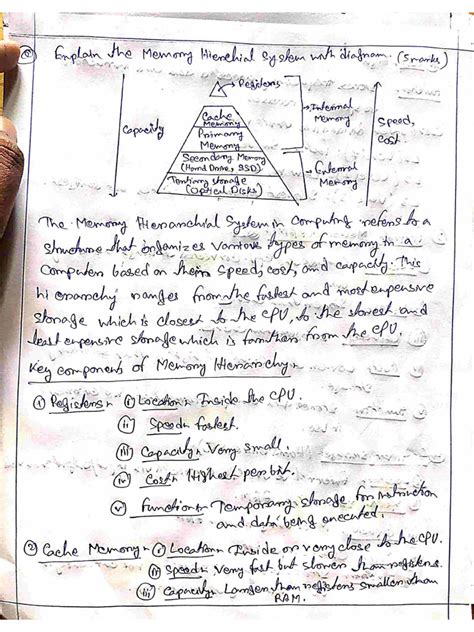 Explain the Memory Hierchial System with diafram. (5 marks)
Registers
Cache
Memory
Primary
Memory
Secondary Memory
(Hard Drive, SSD)
Tertiary storage
(Optical Disks)
Capacity
Internal
Memory
External
Memory
Speed,
Cost
The Memory Hierarchial System in Computing refers to a
structure that organizes various types of memory in a
Computer based on their Speed, cost, and capacity. This
hierarchy ranges from the fastest and most expensive
storage which is closest to the CPU, to the slowest and
least expensive storage which is farther from the CPU.
Key components of Memory Hierarchy:-
① Registers:- ⓘ Location:- Inside the CPU.
ⅱ Speed:- fastest.
ⅲ Capacity:- Very small.
ⅳ Cost:- Highest per bit.
ⅴ Function:- Temporary storage for instruction
and data being executed.
② Cache Memory:- ⓘ Location:- Inside or very close to the CPU.
ⅱ Speed:- Very fast but slower than registers.
ⅲ Capacity:- Larger than registers smaller than
RAM.